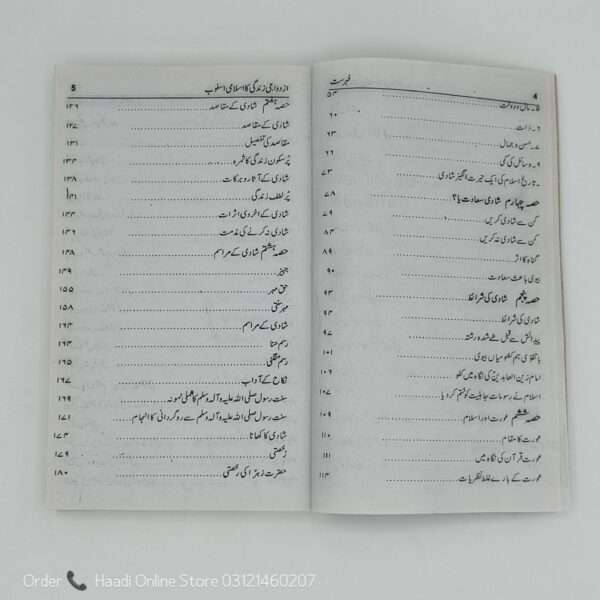 4 فہرست
۵۔ مال و دولت ۵۳
۶۔ ذات ۶۰
۷۔ حسن و جمال ۶۳
۹۔ وسائل کی کمی ۶۶
۔ تاریخ اسلام کی ایک حیرت انگیز شادی ۷۳
حصہ چہارم شادی سعادت یا؟ ۷۸
کن سے شادی کریں ۷۹
کن سے شادی نہ کریں ۸۴
گناہ کا اثر ۸۹
بیوی باعث سعادت ۹۰
حصہ پنجم شادی کی شرائط ۹۳
شادی کی شرائط ۹۴
پیدائش سے قبل طے شدہ رشتہ ۹۷
با تقویٰ ہم کفو میاں بیوی ۱۰۱
امام زین العابدین کی نگاہ میں کفو ۱۰۶
اسلام نے رسومات جاہلیت کو ختم کر دیا ۱۰۷
حصہ ششم عورت اور اسلام ۱۰۹
عورت کا مقام ۱۱۰
عورت قرآن کی نگاہ میں ۱۱۱
عورت کے بارے غلط نظریات ۱۱۳
ازدواجی زندگی کا اسلامی اسلوب 5
حصہ ہشتم شادی کے مقاصد ۱۲۶
شادی کے مقاصد ۱۲۷
مقاصد کی تفصیل ۱۳۱
پرسکون زندگی کا ثمرہ ۱۳۳
شادی کے آثار و برکات ۱۳۸
پر لطف زندگی ۱۴۱
شادی کے اخروی اثرات ۱۴۴
شادی نہ کرنے کی مذمت ۱۴۶
حصہ ہشتم شادی کے مراسم ۱۴۸
جہیز ۱۴۹
حق مہر ۱۵۵
مہر سنتی ۱۵۸
شادی کے مراسم ۱۶۳
رسم حنا ۱۶۴
رسم منگنی ۱۶۵
نکاح کے آداب ۱۶۷
سنت رسول صلی اللہ علیہ وآلہ وسلم کا عملی نمونہ ۱۶۹
سنت رسول صلی اللہ علیہ وآلہ وسلم سے روگردانی کا انجام ۱۷۱
شادی کا کھانا ۱۷۴
رخصتی ۱۷۹
حضرت زہرا کی رخصتی ۱۸۰
Order Haadi Online Store 03121460207